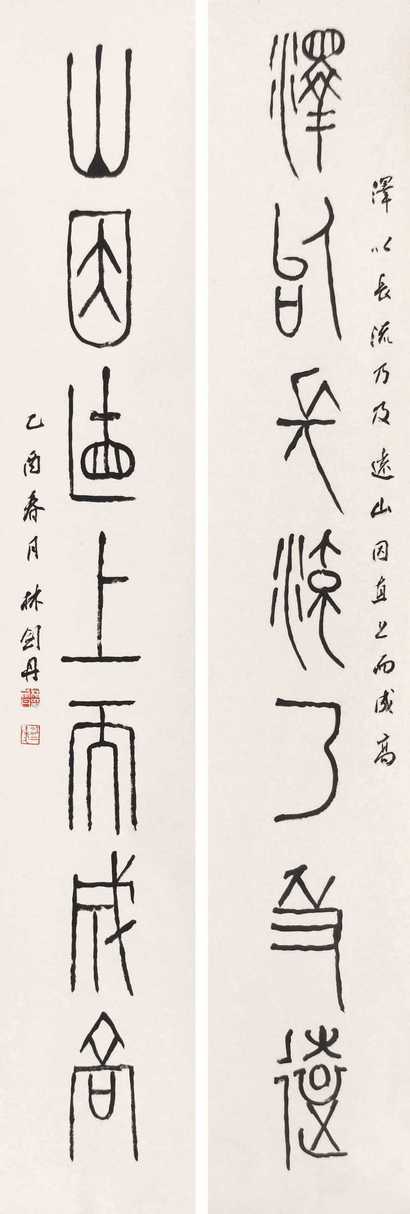 澤以長流乃及遠山因直上而成高
澤以長流乃及遠
山因直上而成高
乙酉春月林劍丹